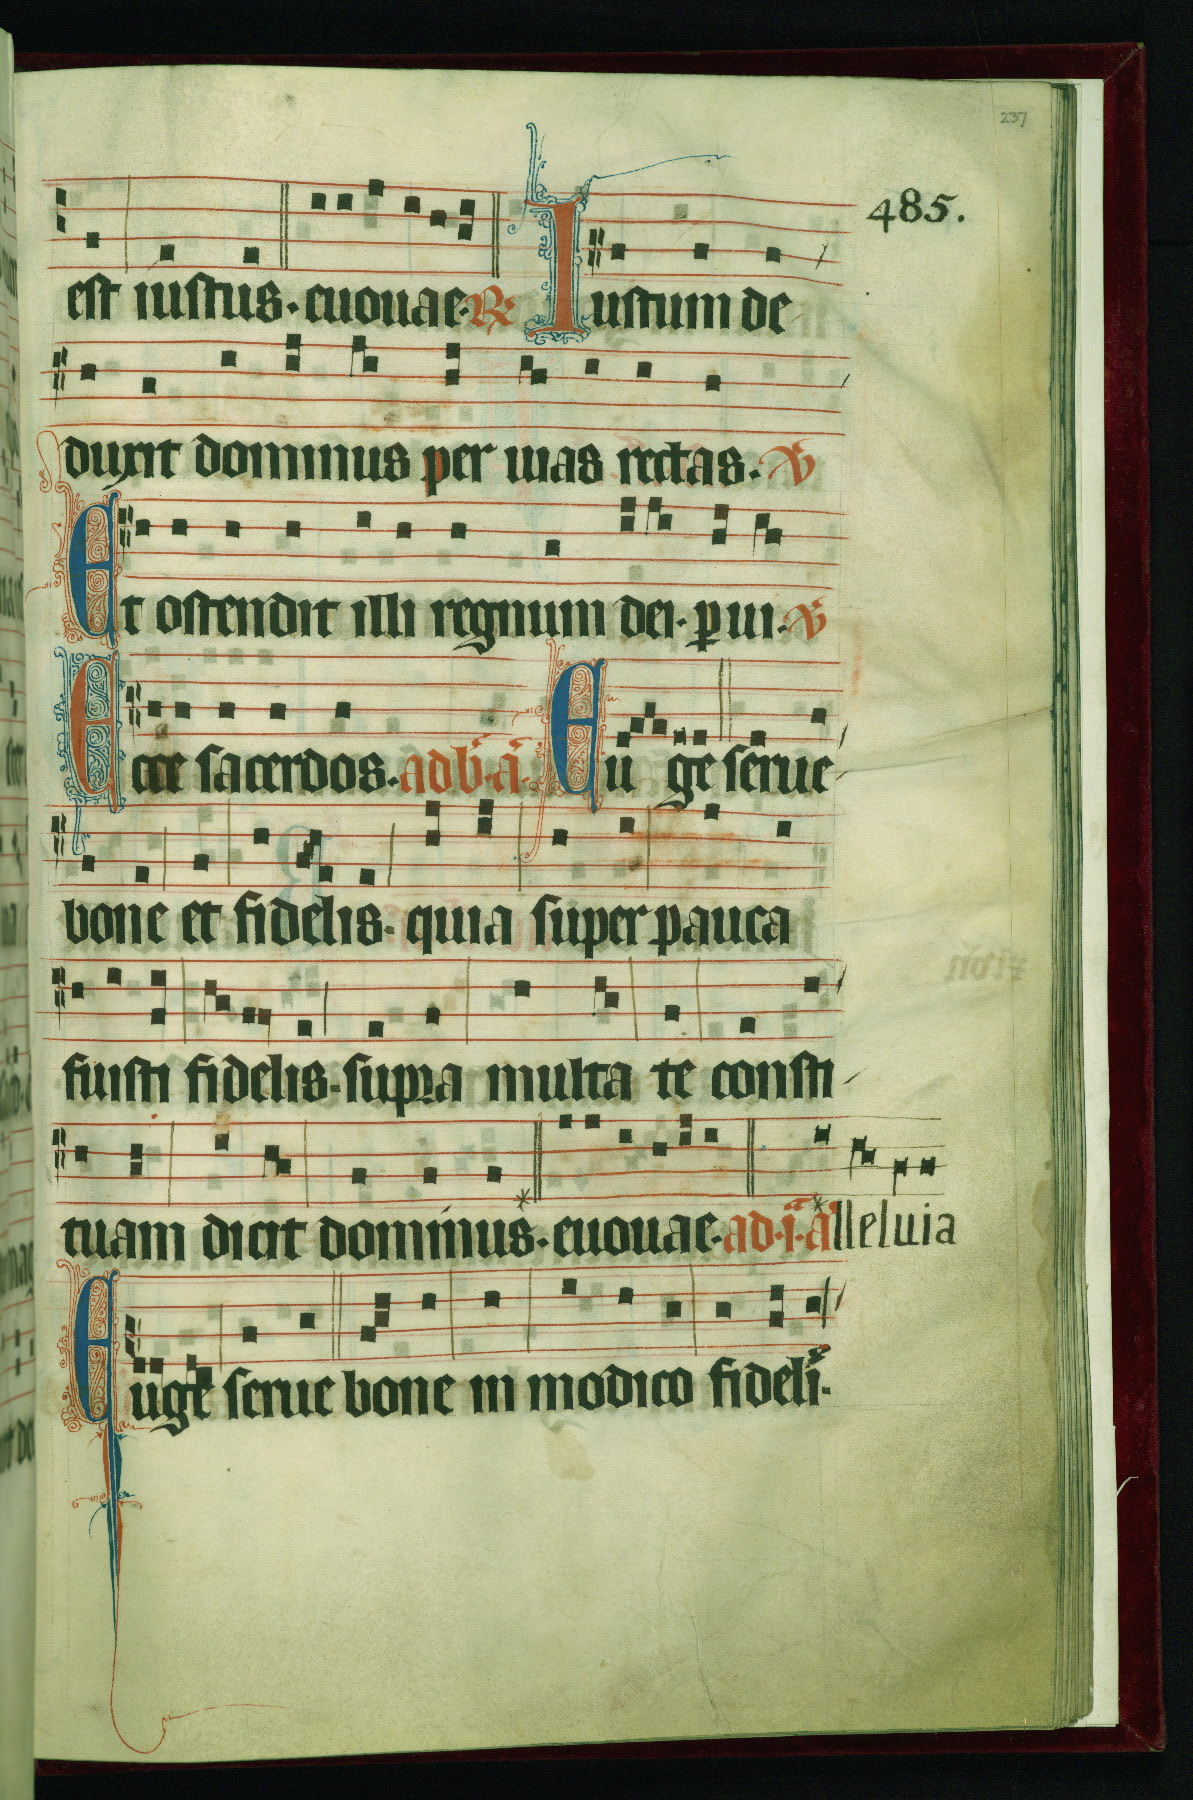 237
485.
est iustus. euouae. R. Iustum de
duxit dominus per uias rectas. V
Et ostendit illi regnum dei. per ui. V
Ecce sacerdos. ad b. a. Euge serue
bone et fidelis. quia super pauca
fuisti fidelis. supra multa te consti
tuam dicit dominus. euouae. ad .i. a lleluia
Euge serue bone in modico fideli.